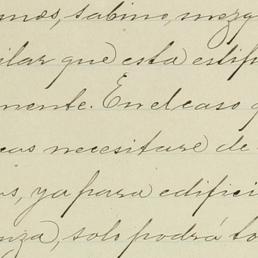 mos, sabino, mezq
ilar que esta estip
mente. En el caso q
cas necesitare de
os, ya para edifici
nza), solo podrá to